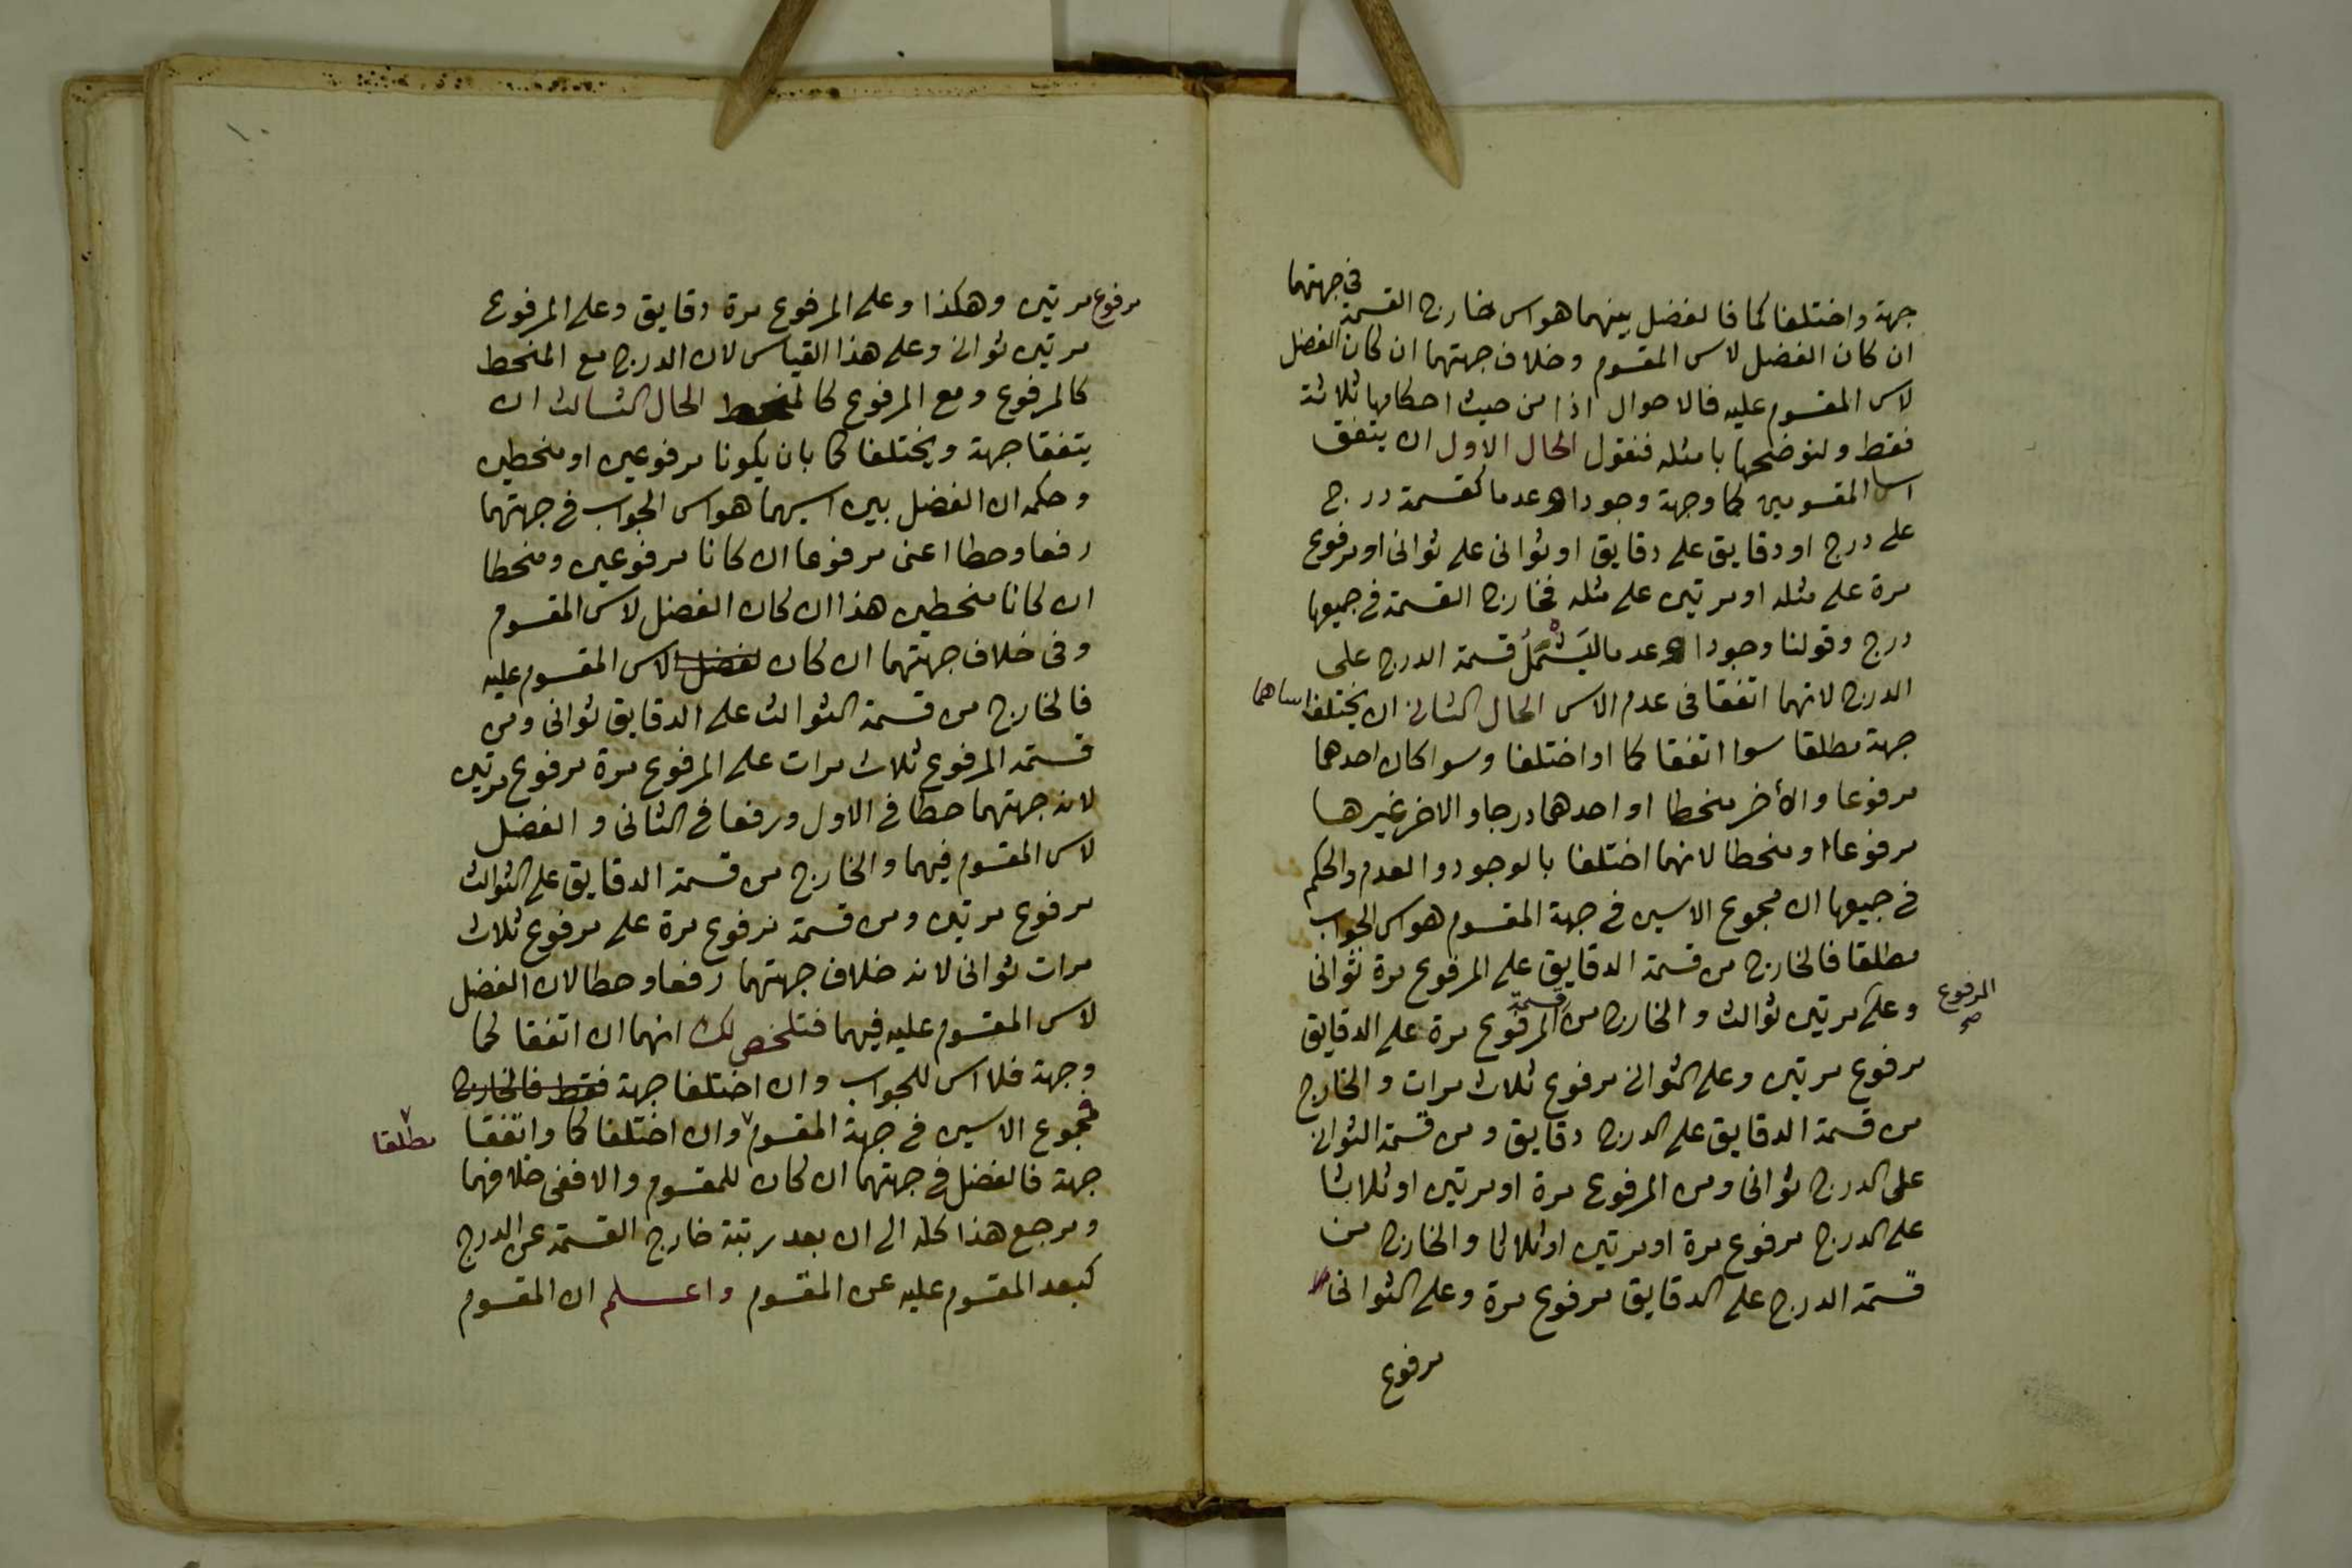 جهة واختلفا كما فالفضل بينهما هو اس خارج القسمة في جهتهما
ان كان الفضل لاس المقسوم وخلاف جهتهما ان كان الفضل
لاس المقسوم عليه فالاحوال اذا من حيث احكامها ثلاثة
فقط ولنوضحها بامثله فنقول الحال الاول ان يتفق
اسا المقسومين كما وجهة وجودا وعدما كقسمة درج
على درج او دقايق على دقايق او ثوانى على ثوانى او مرفوع
مرة على مثله او مرتين على مثله فخارج القسمة فى جميعها
درج وقولنا وجودا وعدما ليشمل قسمة الدرج على
الدرج لانهما اتفقا فى عدم الاس الحال الثانى ان يختلف اساهما
جهة مطلقا سوا اتفقا كما او اختلفا وسوا كان احدهما
مرفوعا والأخر منحطا او احدهما درجا والاخر غيرها
مرفوعا او منحطا لانهما اختلفا بالوجود والعدم والحكم
فى جميعها ان مجموع الاسين فى جهة المقسوم هو اس الجواب
مطلقا فالخارج من قسمة الدقايق على المرفوع مرة ثوانى
وعلى مرتين ثوالث والخارج من قسمة المرفوع مرة على الدقايق
المرفوع
صح
مرفوع مرتين وعلى الثوانى مرفوع ثلاث مرات والخارج
من قسمة الدقايق على الدرج دقايق ومن قسمة الثوانى
على الدرج ثوانى ومن المرفوع مرة او مرتين او ثلاثا
على الدرج مرفوع مرة او مرتين او ثلاثا والخارج من
قسمة الدرج على الدقايق مرفوع مرة وعلى الثوانى
مرفوع
مرفوع مرتين وهكذا وعلى المرفوع مرة دقايق وعلى المرفوع
مرتين ثوانى وعلى هذا القياس لان الدرج مع المنحط
كالمرفوع ومع المرفوع كالمنحط الحال الثالث ان
يتفقا جهة ويختلفا كما بان يكونا مرفوعين او منحطين
وحكمه ان الفضل بين اسيهما هو اس الجواب فى جهتهما
رفعا وحطا اعنى مرفوعا ان كانا مرفوعين ومنحطا
ان كانا منحطين هذا ان كان الفضل لاس المقسوم
وفى خلاف جهتهما ان كان لفضل لاس المقسوم عليه
فالخارج من قسمة الثوالث على الدقايق ثوانى ومن
قسمة المرفوع ثلاث مرات على المرفوع مرة مرفوع مرتين
لانه جهتهما حطا فى الاول ورفعا فى الثانى والفضل
لاس المقسوم فيهما والخارج من قسمة الدقايق على الثوالث
مرفوع مرتين ومن قسمة مرفوع مرة على مرفوع ثلاث
مرات ثوانى لانه خلاف جهتهما رفعا وحطا لان الفضل
لاس المقسوم عليه فيهما فتلخص لك انهما ان اتفقا كما
وجهة فلا اس للجواب وان اختلفا جهة فقط فالخارج
فمجموع الاسين فى جهة المقسوم وان اختلفا كما واتفقا
مطلقا
جهة فالفضل فى جهتهما ان كان للمقسوم والا ففى خلافهما
ومرجع هذا كله الى ان بعد رتبة خارج القسمة عن الدرج
كبعد المقسوم عليه عن المقسوم واعلم ان المقسوم